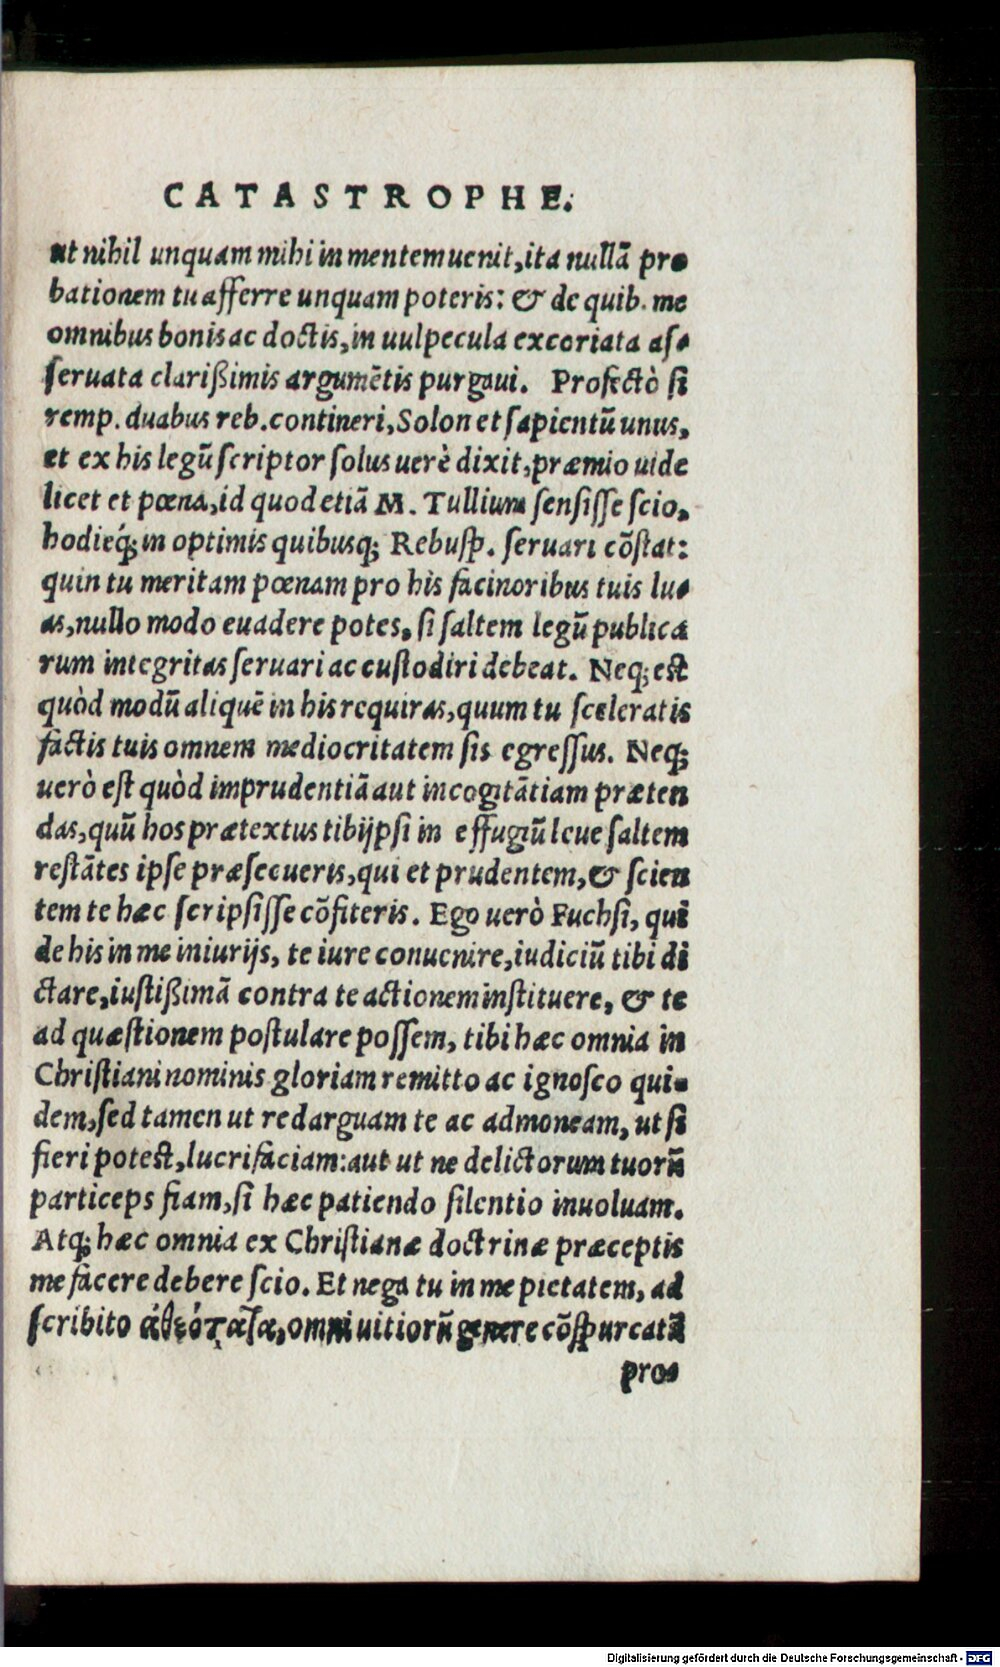 CATASTROPHE.
ut nihil unquam mihi in mentem uenit, ita nullā pro
bationem tu afferre unquam poteris: & de quib. me
omnibus bonis ac doctis, in uulpecula excoriata as-
seruata clarißimis argumētis purgaui. Profectò si
remp. duabus reb. contineri, Solon et sapientū unus,
et ex his legū scriptor solus uerè dixit, præmio uide
licet et pœna, id quod etiā M. Tullium sensisse scio,
hodieq́; in optimis quibusq; Rebusp. seruari cōstat:
quin tu meritam pœnam pro his facinoribus tuis lu-
as, nullo modo euadere potes, si saltem legū publica
rum integritas seruari ac custodiri debeat. Neq; est
quòd modū aliquē in his requiras, quum tu sceleratis
factis tuis omnem mediocritatem sis egressus. Neq;
uerò est quòd imprudentiā aut incogitātiam præten
das, quū hos prætextus tibijpsi in effugiū leue saltem
restātes ipse præsecueris, qui et prudentem, & scien
tem te hæc scripsisse cōfiteris. Ego uerò Fuchsi, qui
de his in me iniurijs, te iure conuenire, iudiciū tibi di
ctare, iustißimā contra te actionem instituere, & te
ad quæstionem postulare possem, tibi hæc omnia in
Christiani nominis gloriam remitto ac ignosco qui-
dem, sed tamen ut redarguam te ac admoneam, ut si
fieri potest, lucrifaciam: aut ut ne delictorum tuorū
particeps fiam, si hæc patiendo silentio inuoluam.
Atq; hæc omnia ex Christianæ doctrinæ præceptis
me facere debere scio. Et nega tu in me pietatem, ad
scribito omni uitiorū genere cōspurcatā
pro-
Digitalisierung gefördert durch die Deutsche Forschungsgemeinschaft - DFG